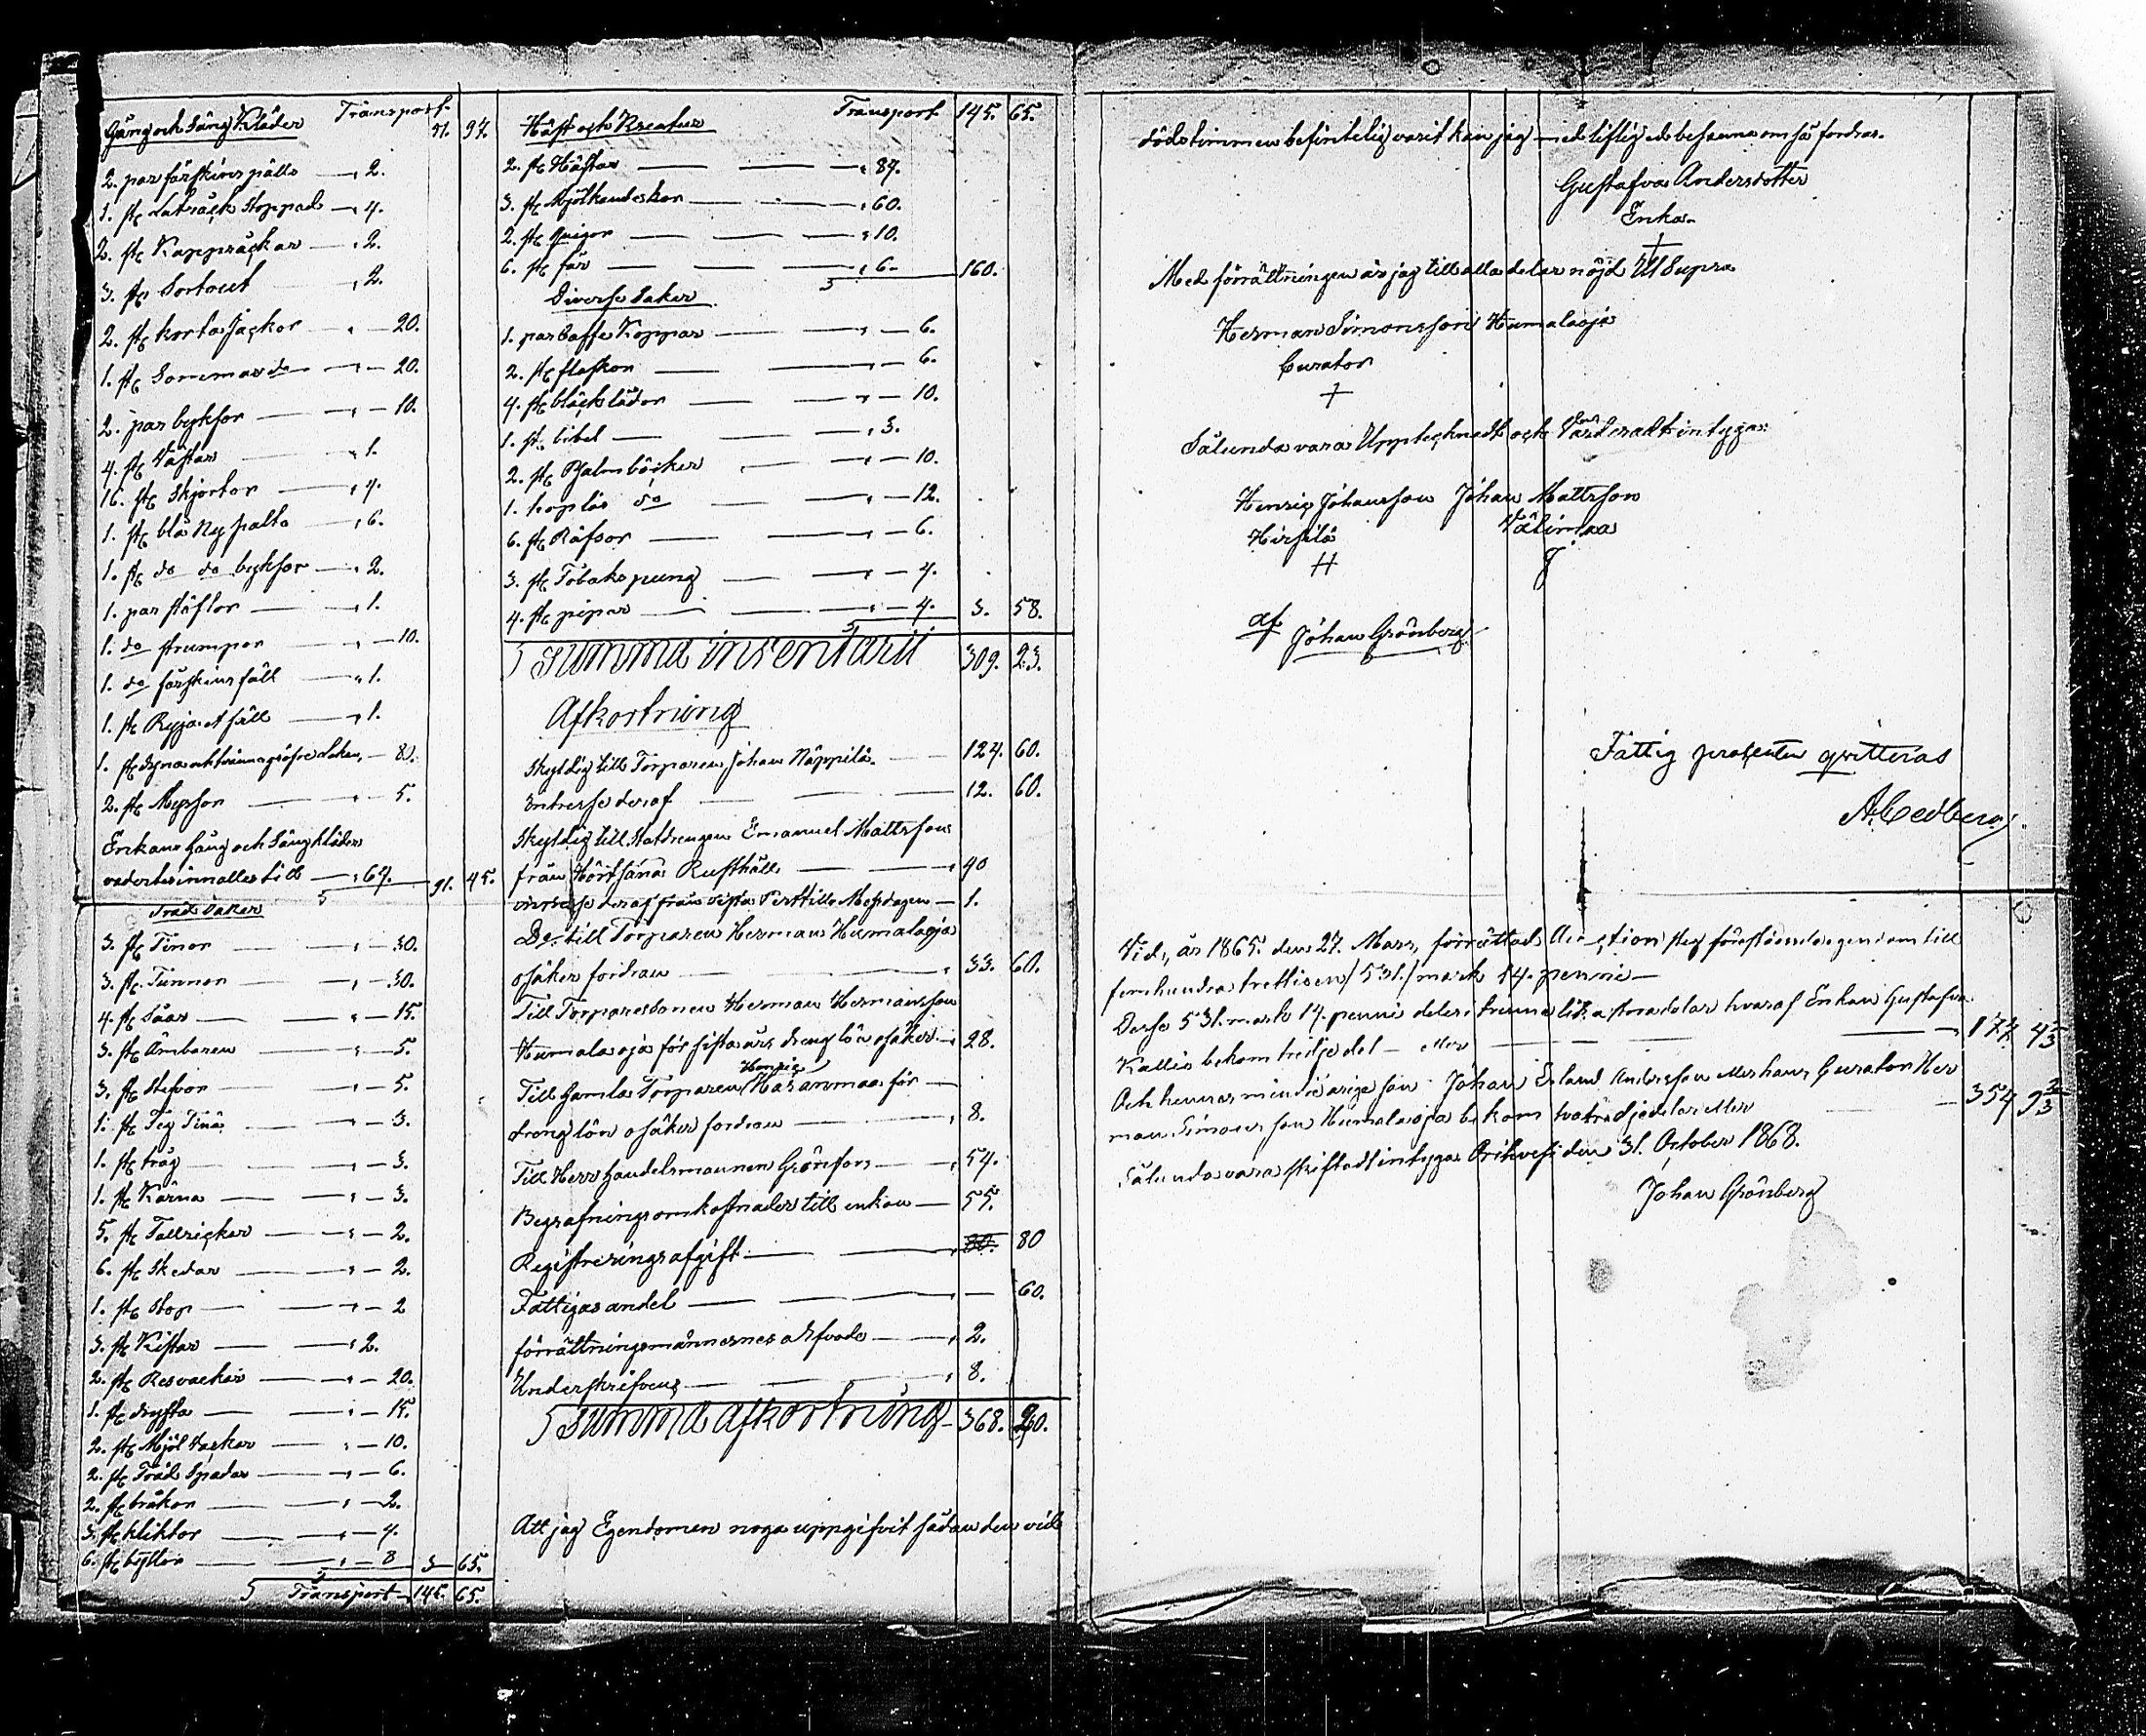 Gång och Säng Kläder Transport 51. 97.
2. par fårskins pälls — 2.
1. st. Lakräck Stoppad — 4.
2. st. Kappräckar — 2.
3. st. Sortout — 2.
2. st. korta Jackor — 20.
1. st. Sommar do — 20.
2. par byksor — 10.
4. st. Västar — 1.
16. st. Skjortor — 4.
1. st. blå Ny palto — 6.
1. st. do do byksor — 2.
1. par stöflor — 1.
1. do strumpor — 10.
1. do fårskins fäll — 1.
1. st. Ryja fäll — 1.
1. st. Dyna och lakan — 80.
2. st. Myssor — 5.
Enkans Gång och Sängkläder
värdertes innalles till — 64. 91. 45.
Träd Saker
3. st. Tinor — 30.
3. st. Tunnor — 30.
4. st. Såar — 15.
3. st. Ämbaren — 5.
3. st. Stefvor — 5.
1. st. Deg Tina — 3.
1. st. tråg — 3.
1. st. Kärna — 3.
5. st. Tallrickar — 2.
6. st. Skedar — 2.
1. st. Stop — 2
3. st. Kistor — 2.
2. st. Resvackor — 20.
1. st. dryfta — 15.
2. st. Mjöl Vackor — 10.
2. st. Träd Spadar — 6.
2. st. bråkor — 2.
3. st. kliktor — 4.
6. st. byttor — 8 3 65.
Transport 145. 65.
Häst och Kreatur Transport 145. 65.
2. st. Hästar — 84.
3. st. Mjölkandeskor — 60.
2. st. Quigor — 10.
6. st. får — 6. 160.
Diverse Saker
1. par Caffe Koppar — 6.
2. st. flaskor — 6.
4. st. bläcklådor — 10.
1. st. bibel — 3.
2. st. Psalmböcker — 10.
1. hoplös do — 12.
6. st. Räfsor — 6.
3. st. Tobakspung — 4.
4. st. pipor — 4. 3. 58.
Summa inventarii 309. 23.
Afkortning
Skyldig till Torparen Johan Näppilä — 124. 60.
Intresse deraf — 12. 60.
Skyldig till Statdrengen Emanuel Mattsson
från Hörtsänä Rusthåll — 40
intresse deraf från sista Perttilli Messdagen — 1.
Do. till Torparen Herman Humalaoja
osäker fordran — 33. 60.
Till Torparesonen Herman Hermansson
Humalaoja för sista års dreng lön osäker — 28.
Till Gamla Torparen Henric Hasanmaa för —
dreng lön osäker fordran — 8.
Till Herr handelsmannen Grönfors — 54.
Begrafningsomkostnader till enkan — 55.
Registreringsafgift — 80
Fattigas andel — 60.
förrättningsmännernes arfvode — 2.
Underskrifvens — 8.
Summa afkortning 368. 20.
Att jag Egendomen noga uppgifvit sådan den vid
dödstimmen befintelig varit kan jag med liflig ed besanna om så fordras.
Gustafva Andersdotter
Enka
Med förrättningen är jag till alla delar nöjd Ut Supra
Herman Simonsson Humalaoja
Curator
+
Sålunda vara Upptecknadt och Värderadt intyga:
Henric Johansson Johan Mattsson
Hirsilä Välimaa
af Johan Grönberg
Fattig procenten qvitteras
A. Cedberg
Vid, år 1865. den 27. Mars, förrättad Auction steg förestående egendom till
femhundra trettien /531./ mark 14. penni —
Desse 531. mark 14. penni deles i trenne lika stora delar hvaraf Enkan Gustafva
Kallis bekom tredje del — eller — 177 4⅔
Och hennes mindreårige son Johan Erland Andersson eller hans Curator Her
man Simonsson Humalaoja bekom två tredjedelar eller — 354 9⅓
Sålunda vara skiftadt intygar Orihvesi den 31. October 1868.
Johan Grönberg